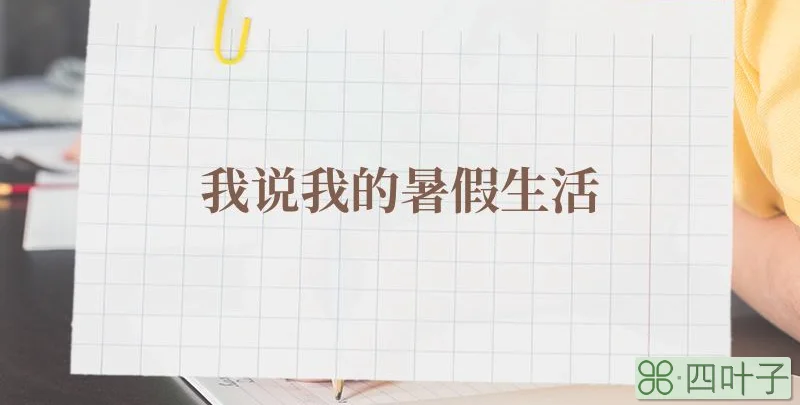 我说我的暑假生活
四叶子